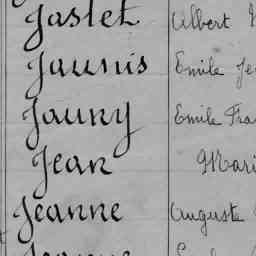 Jaslet Albert
Jaunis Emile
Jauny Emile
Jean Mari
Jeanne Auguste